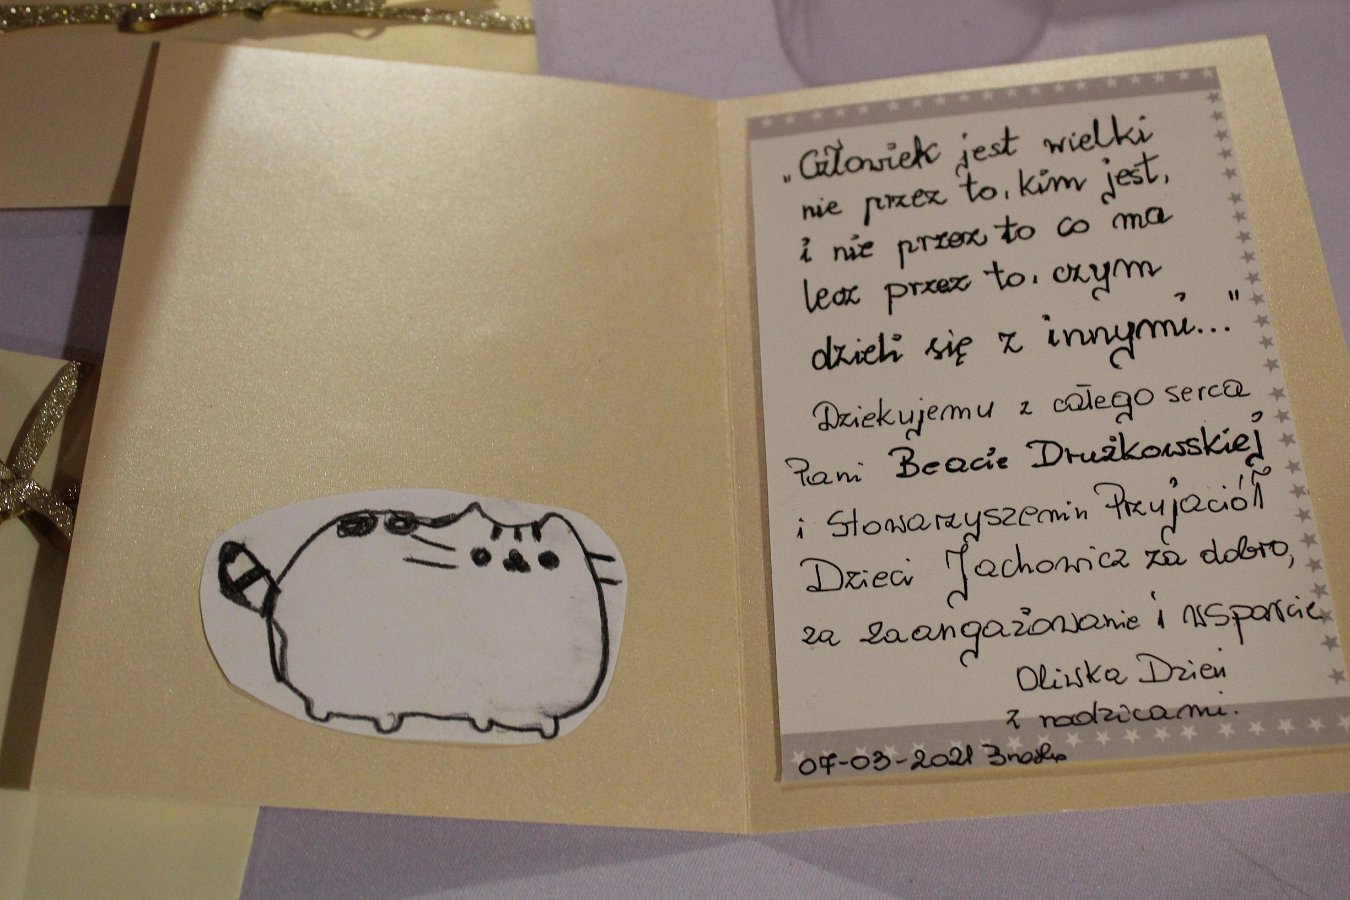 „Człowiek jest wielki
nie przez to, kim jest,
i nie przez to co ma
lecz przez to, czym
dzieli się z innymi..."
Dziekujemy z całego serca
Pani Beacie Drużkowskiej
i Stowarzyszeniu Przyjaciół
Dzieci Jachowicz za dobro,
za zaangażowanie i wsparcie
Oliwska Dzień
z rodzicami.
07-03-2021